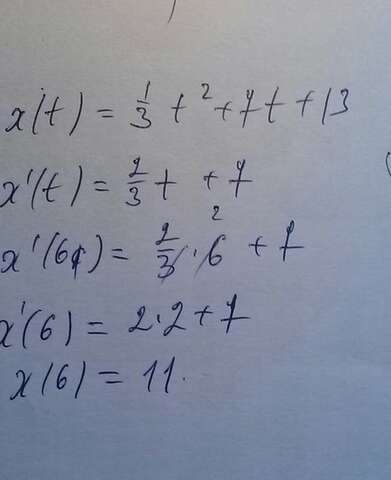 x(t) = 1/3 t² + 7t + 13
x'(t) = 2/3 t + 7
x'(6) = 2/3 · 6 + 7
x'(6) = 2·2 + 7
x(6) = 11.